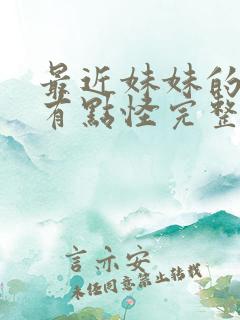 最近妹妹的
有點怪完整
言亦安
未经同意禁止转载